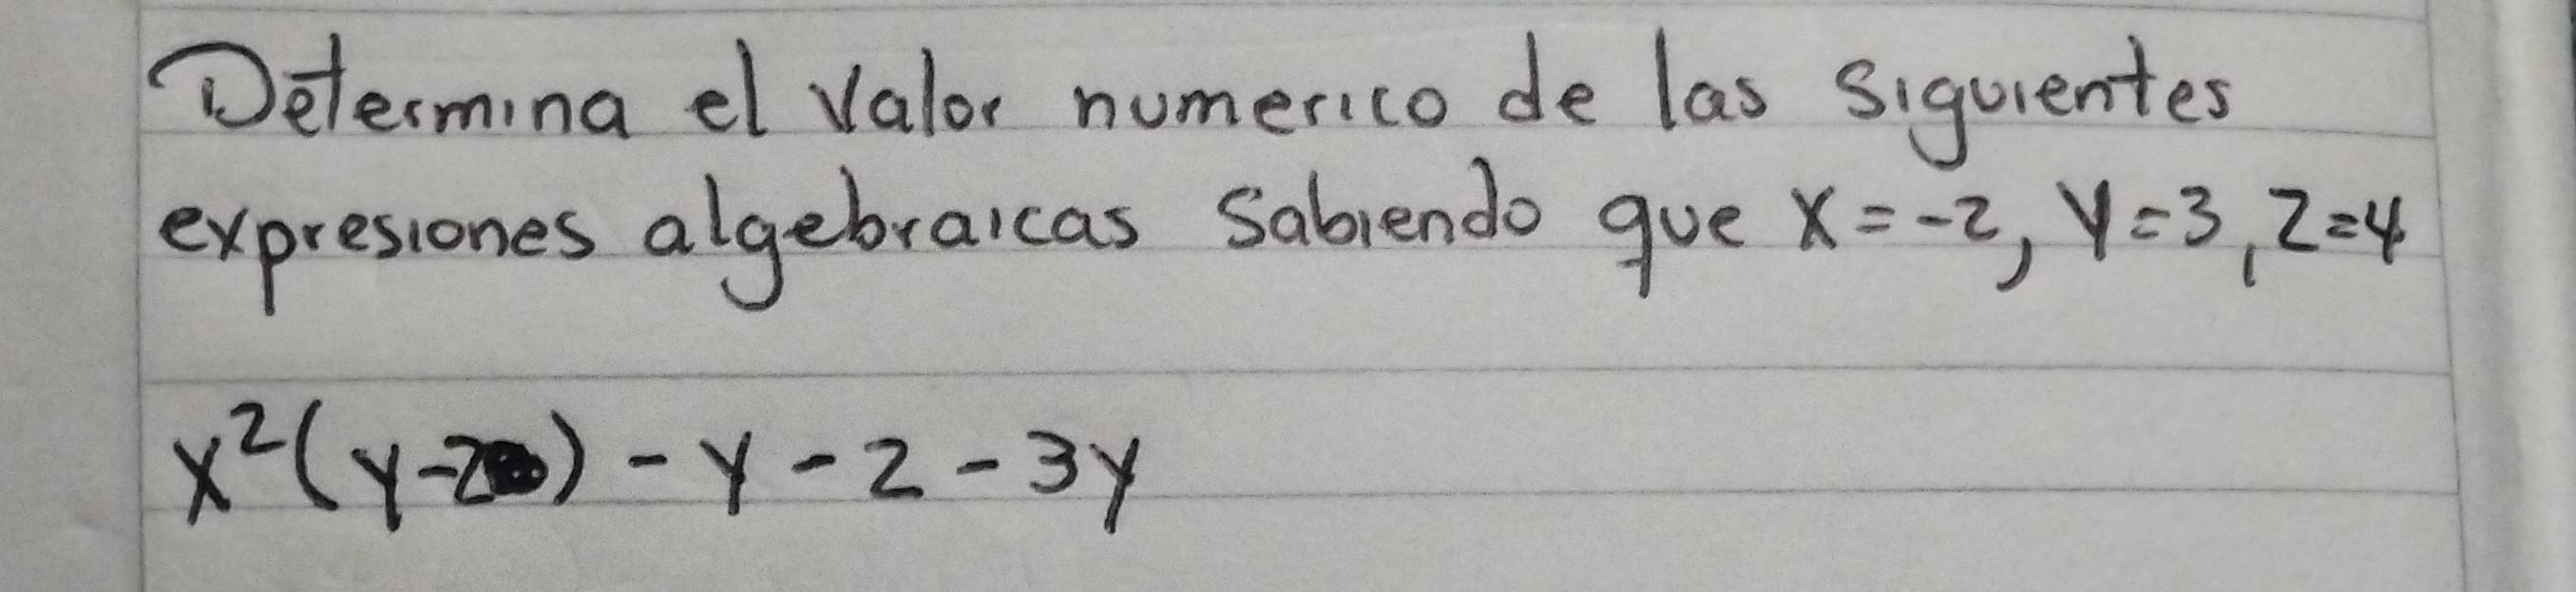 Determina el valor numerico de las siguientes
expresiones algebraicas sabiendo que x=-2, y=3, z=4
x²(y-z) - y - z - 3y